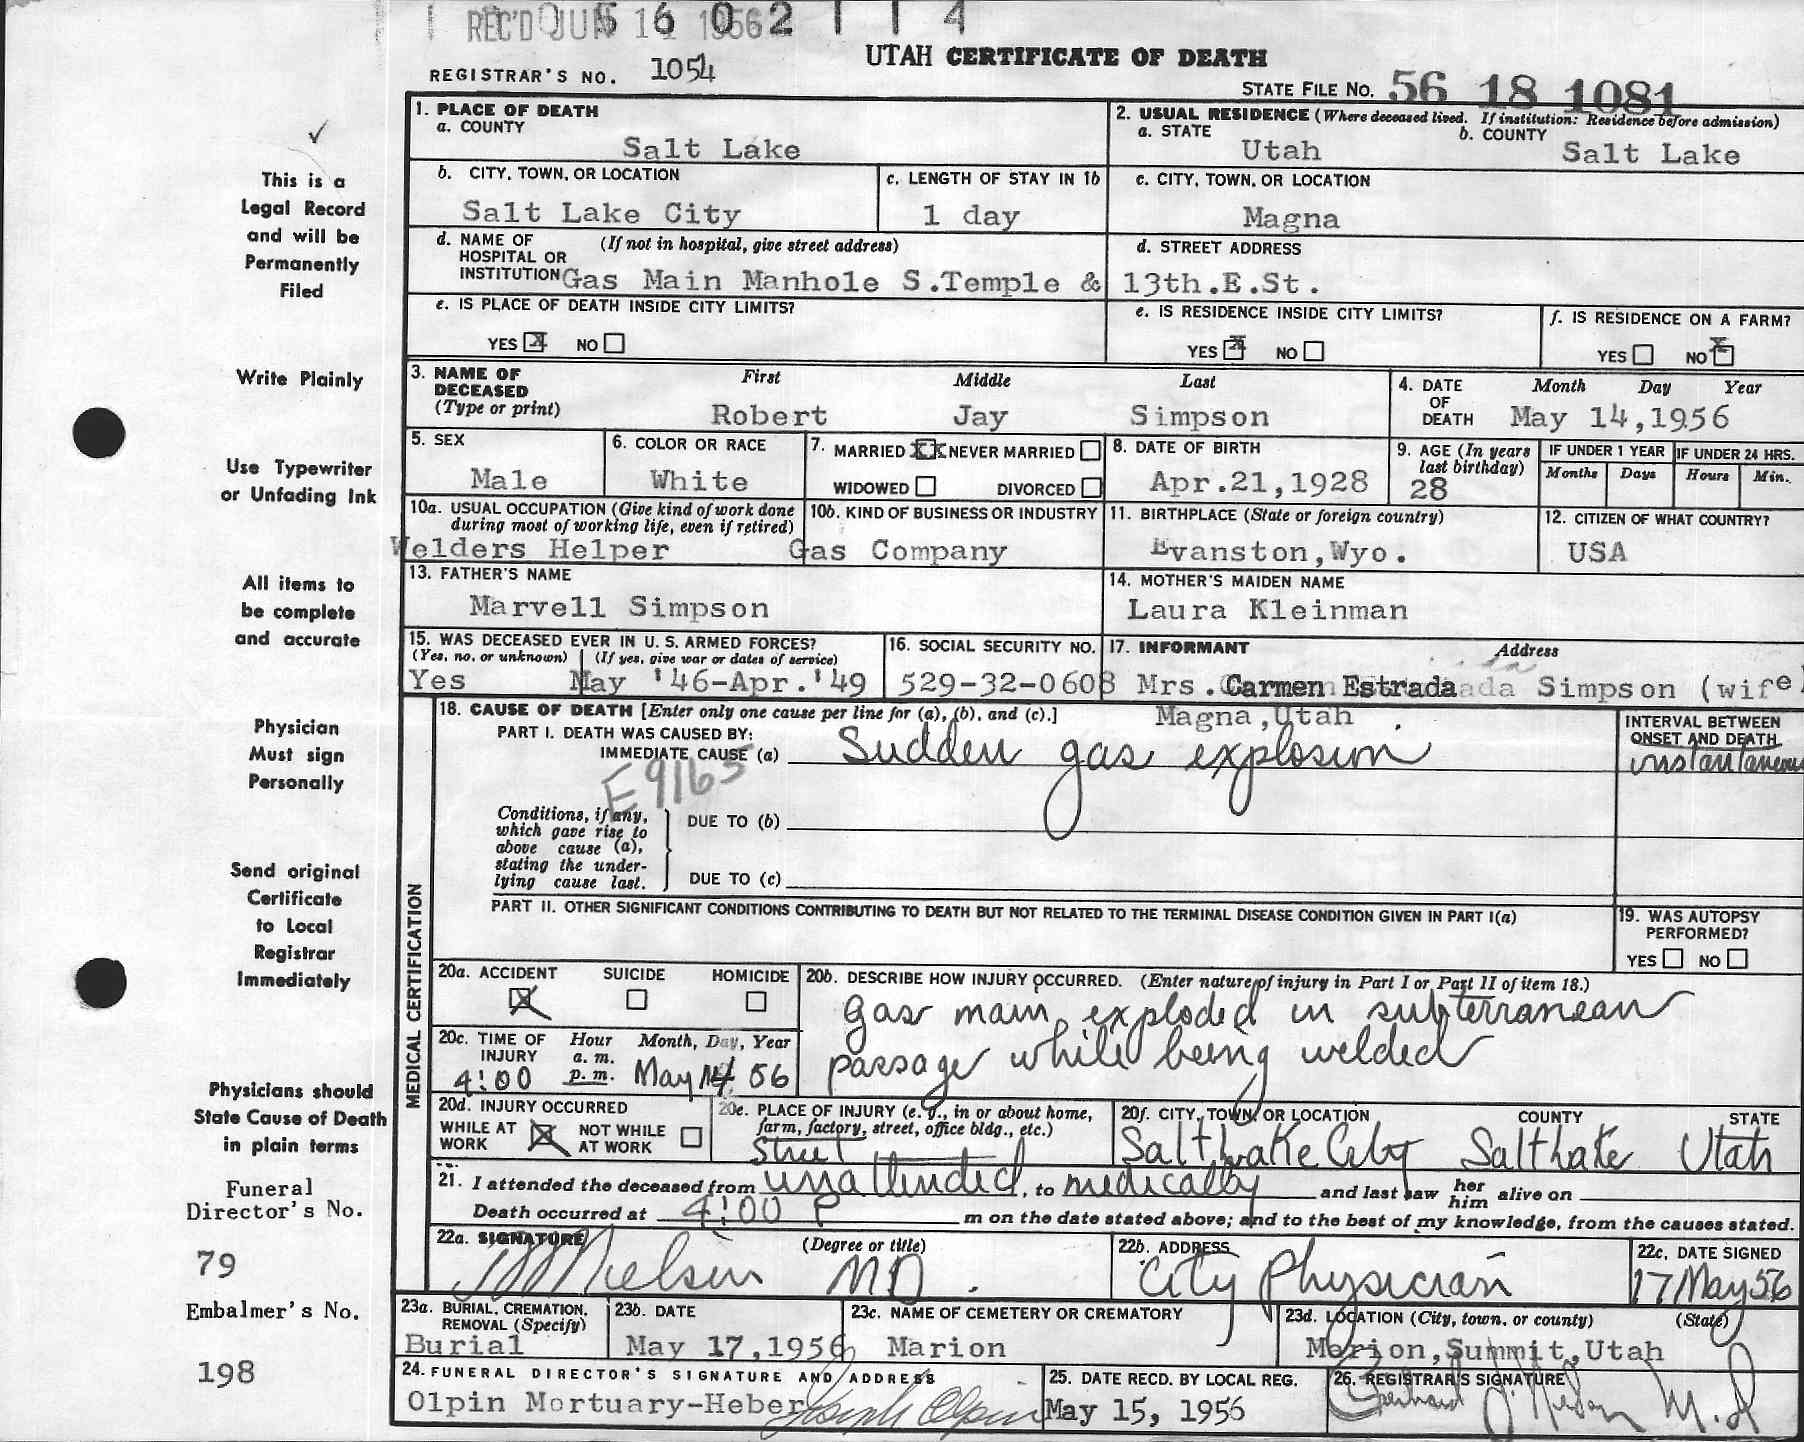 REC'D JUN 11 1956
5 6 0 2 1 1 4
UTAH CERTIFICATE OF DEATH
REGISTRAR'S NO. 1054
STATE FILE NO. 56 18 1081
This is a
Legal Record
and will be
Permanently
Filed
Write Plainly
Use Typewriter
or Unfading Ink
All items to
be complete
and accurate
Physician
Must sign
Personally
Send original
Certificate
to Local
Registrar
Immediately
Physicians should
State Cause of Death
in plain terms
Funeral
Director's No.
79
Embalmer's No.
198
1. PLACE OF DEATH
a. COUNTY
Salt Lake
2. USUAL RESIDENCE (Where deceased lived. If institution: Residence before admission)
a. STATE
Utah
b. COUNTY
Salt Lake
b. CITY, TOWN, OR LOCATION
Salt Lake City
c. LENGTH OF STAY IN 1b
1 day
c. CITY, TOWN, OR LOCATION
Magna
d. NAME OF HOSPITAL OR INSTITUTION (If not in hospital, give street address)
Gas Main Manhole S.Temple & 13th.E.St.
d. STREET ADDRESS
e. IS PLACE OF DEATH INSIDE CITY LIMITS?
YES X NO
e. IS RESIDENCE INSIDE CITY LIMITS?
YES X NO
f. IS RESIDENCE ON A FARM?
YES NO X
3. NAME OF DECEASED (Type or print)
First Middle Last
Robert Jay Simpson
4. DATE OF DEATH Month Day Year
May 14,1956
5. SEX
Male
6. COLOR OR RACE
White
7. MARRIED XX NEVER MARRIED
WIDOWED DIVORCED
8. DATE OF BIRTH
Apr.21,1928
9. AGE (In years last birthday)
28
IF UNDER 1 YEAR
Months Days
IF UNDER 24 HRS.
Hours Min.
10a. USUAL OCCUPATION (Give kind of work done during most of working life, even if retired)
Welders Helper
10b. KIND OF BUSINESS OR INDUSTRY
Gas Company
11. BIRTHPLACE (State or foreign country)
Evanston,Wyo.
12. CITIZEN OF WHAT COUNTRY?
USA
13. FATHER'S NAME
Marvell Simpson
14. MOTHER'S MAIDEN NAME
Laura Kleinman
15. WAS DECEASED EVER IN U. S. ARMED FORCES?
(Yes, no, or unknown) (If yes, give war or dates of service)
Yes May '46-Apr.'49
16. SOCIAL SECURITY NO.
529-32-0608
17. INFORMANT Address
Mrs. Carmen Estrada Simpson (wife)
Magna,Utah
MEDICAL CERTIFICATION
18. CAUSE OF DEATH [Enter only one cause per line for (a), (b), and (c).]
PART I. DEATH WAS CAUSED BY:
IMMEDIATE CAUSE (a) Sudden gas explosion
E9165
INTERVAL BETWEEN ONSET AND DEATH
instantaneous
Conditions, if any, which gave rise to above cause (a), stating the underlying cause last.
DUE TO (b)
DUE TO (c)
PART II. OTHER SIGNIFICANT CONDITIONS CONTRIBUTING TO DEATH BUT NOT RELATED TO THE TERMINAL DISEASE CONDITION GIVEN IN PART I(a)
19. WAS AUTOPSY PERFORMED?
YES NO
20a. ACCIDENT SUICIDE HOMICIDE
X
20b. DESCRIBE HOW INJURY OCCURRED. (Enter nature of injury in Part I or Part II of item 18.)
gas main exploded in subterranean
passage while being welded
20c. TIME OF INJURY Hour a. m. p. m. Month, Day, Year
4:00 May 14 56
20d. INJURY OCCURRED
WHILE AT WORK X NOT WHILE AT WORK
20e. PLACE OF INJURY (e. g., in or about home, farm, factory, street, office bldg., etc.)
Street
20f. CITY, TOWN, OR LOCATION COUNTY STATE
Salt Lake City Salt Lake Utah
21. I attended the deceased from unattended, to medically and last saw her him alive on
Death occurred at 4:00 P m on the date stated above; and to the best of my knowledge, from the causes stated.
22a. SIGNATURE (Degree or title)
Nielsen MD.
22b. ADDRESS
City Physician
22c. DATE SIGNED
17 May 56
23a. BURIAL, CREMATION, REMOVAL (Specify)
Burial
23b. DATE
May 17,1956
23c. NAME OF CEMETERY OR CREMATORY
Marion
23d. LOCATION (City, town, or county) (State)
Merion,Summit,Utah
24. FUNERAL DIRECTOR'S SIGNATURE AND ADDRESS
Olpin Mortuary-Heber Joseph Olpin
25. DATE RECD. BY LOCAL REG.
May 15, 1956
26. REGISTRAR'S SIGNATURE
M.D